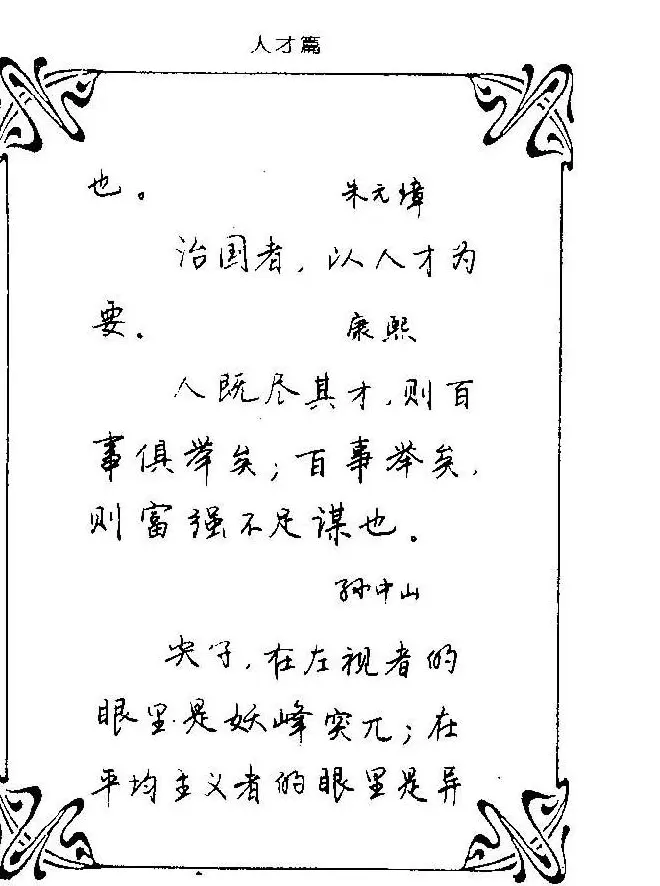 人才篇
也。 朱元璋
治国者，以人才为
要。 康熙
人既尽其才，则百
事俱举矣；百事举矣，
则富强不足谋也。
孙中山
尖子，在左视者的
眼里是妖峰突兀；在
平均主义者的眼里是异